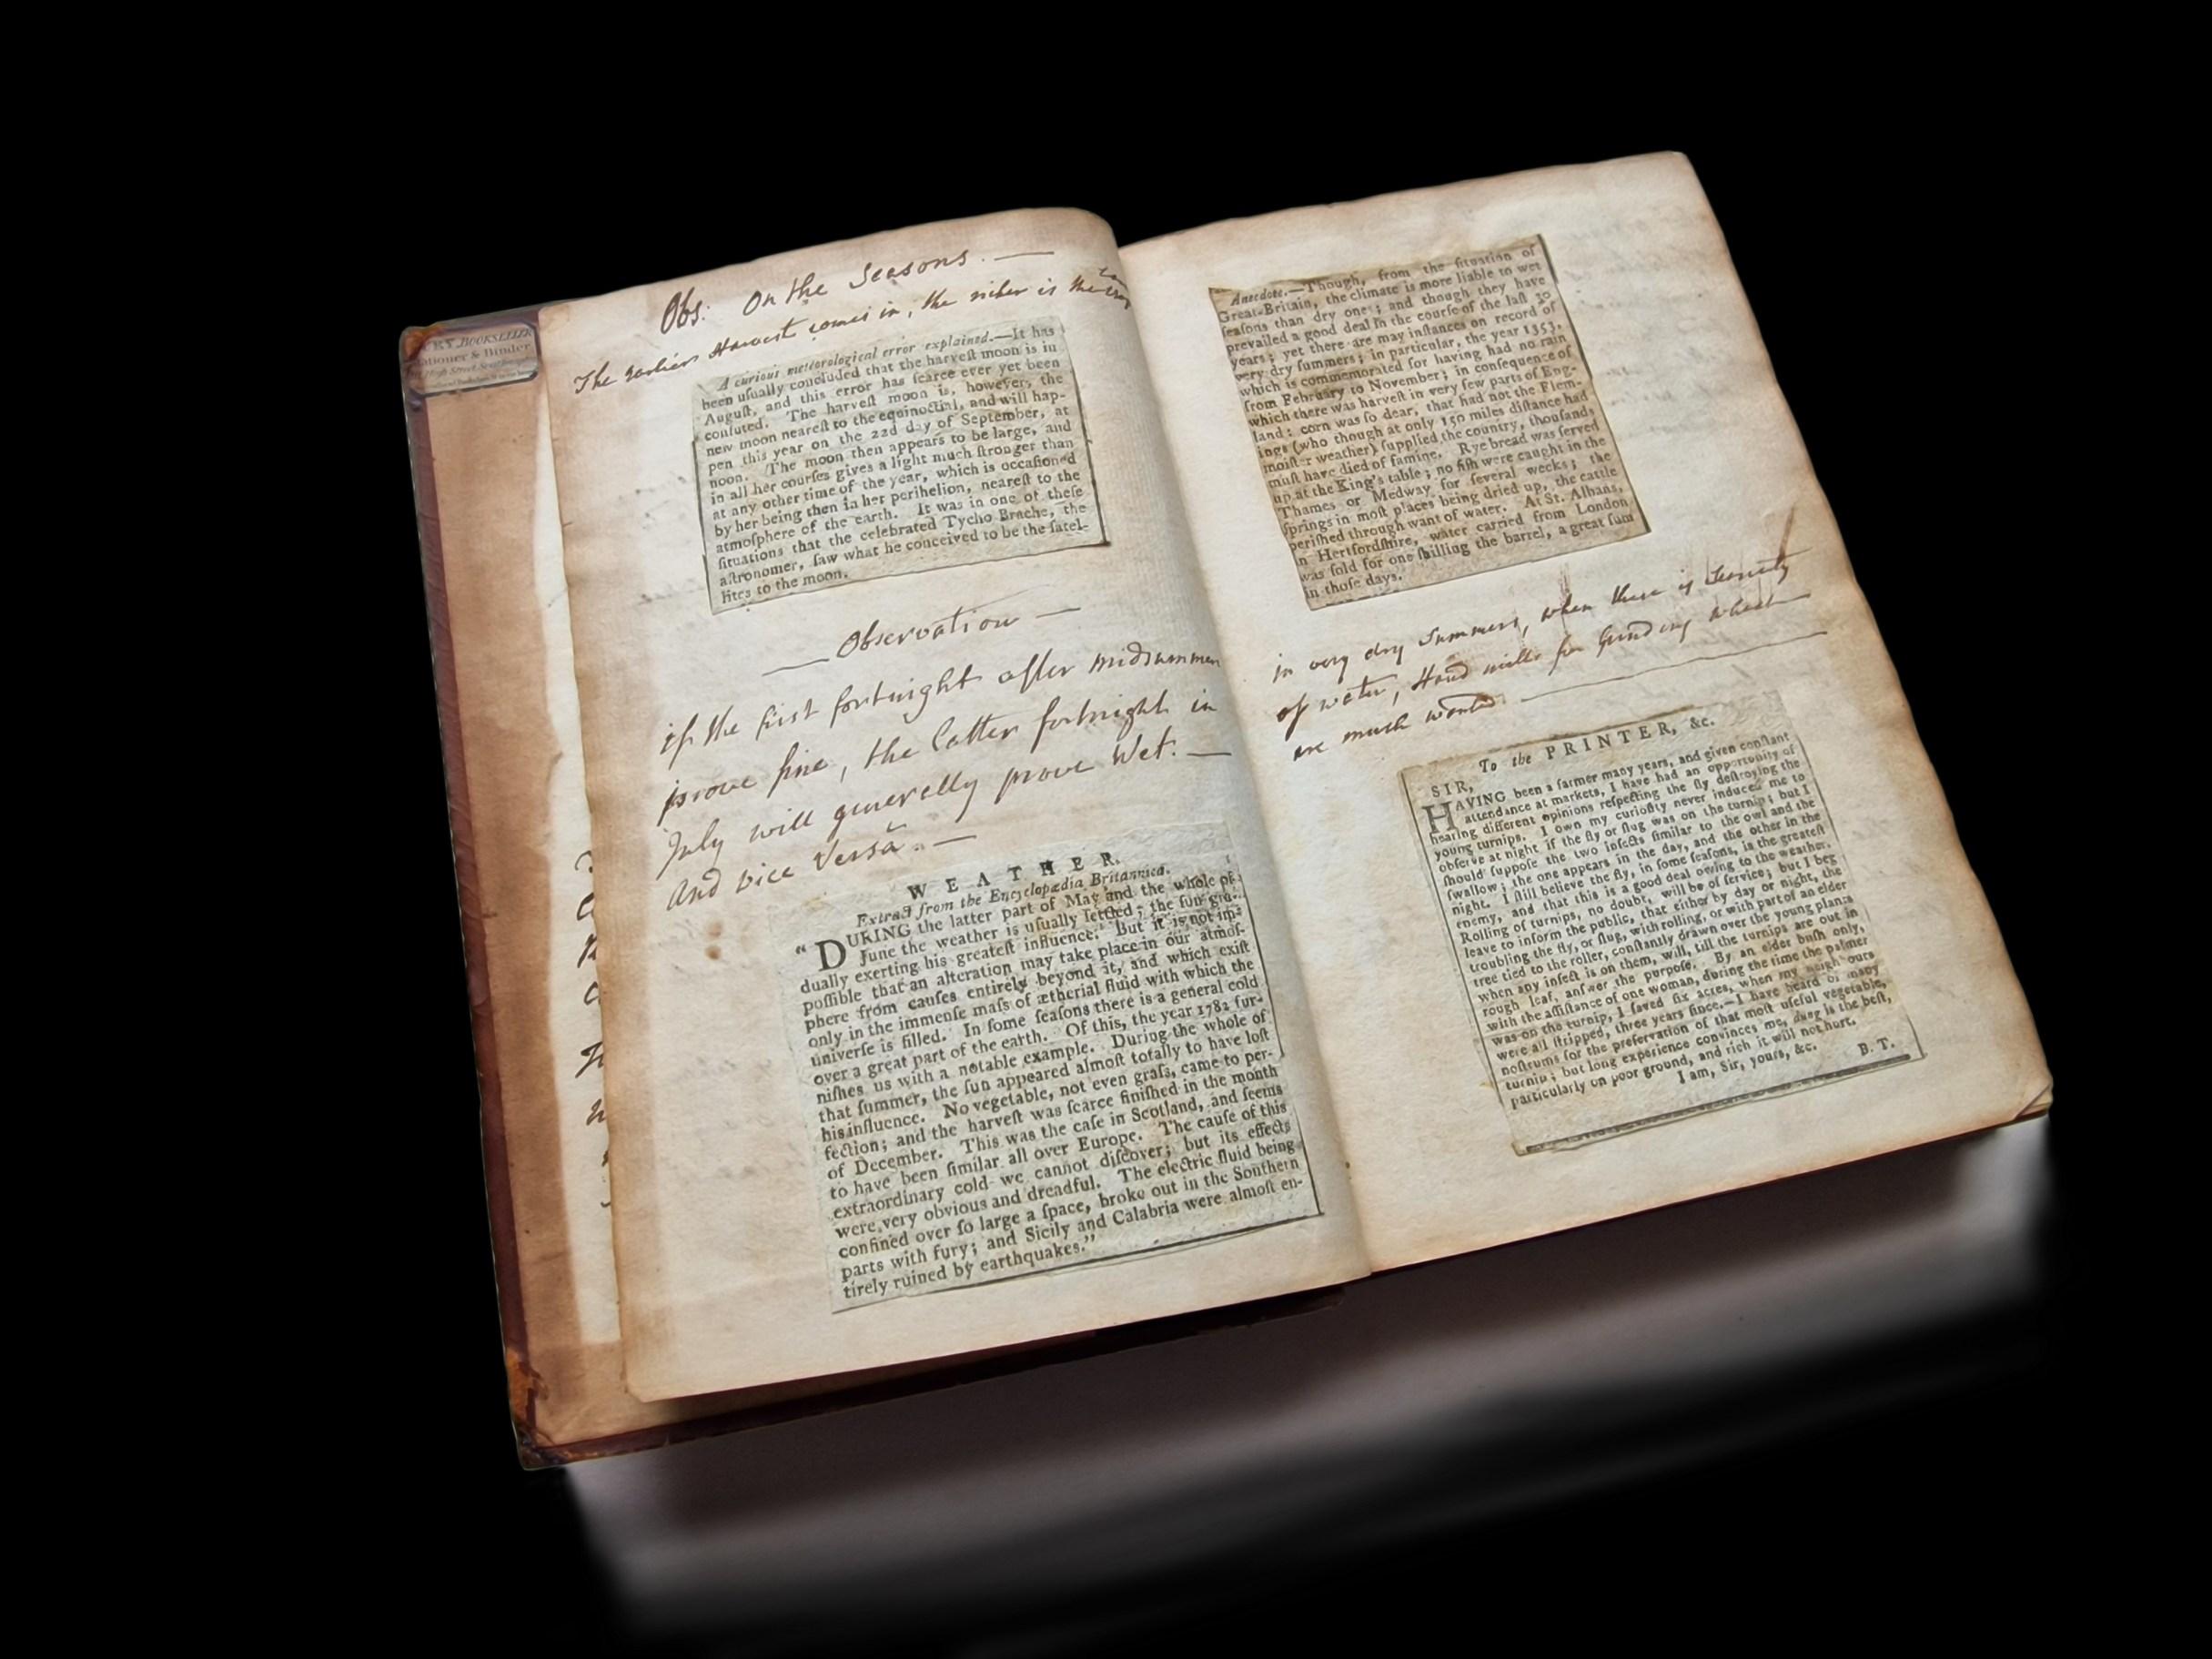 BOOKSELLER
Stationer & Binder
High Street
Obs: On the Seasons. —
The earlier Harvest comes in, the richer is the
A curious meteorological error explained.—It has
been uſually concluded that the harveſt moon is in
Auguſt, and this error has ſcarce ever yet been
confuted. The harveſt moon is, however, the
new moon neareſt to the equinoctial, and will hap-
pen this year on the 22d day of September, at
noon. The moon then appears to be large, and
in all her courſes gives a light much ſtronger than
at any other time of the year, which is occaſioned
by her being then in her perihelion, neareſt to the
atmoſphere of the earth. It was in one of theſe
ſituations that the celebrated Tycho Brache, the
aſtronomer, ſaw what he conceived to be the ſatel-
lites to the moon.
— Observation —
if the first fortnight after midsummer
prove fine, the latter fortnight in
July will generally prove Wet. —
And vice Versâ. —
WEATHER.
Extract from the Encyclopædia Britannica.
"DURING the latter part of May and the whole of
June the weather is uſually ſettled; the ſun gra-
dually exerting his greateſt influence. But it is not im-
poſſible that an alteration may take place in our atmoſ-
phere from cauſes entirely beyond it, and which exiſt
only in the immenſe maſs of ætherial fluid with which the
univerſe is filled. In ſome ſeaſons there is a general cold
over a great part of the earth. Of this, the year 1782 fur-
niſhes us with a notable example. During the whole of
that ſummer, the ſun appeared almoſt totally to have loſt
his influence. No vegetable, not even graſs, came to per-
fection; and the harveſt was ſcarce finiſhed in the month
of December. This was the caſe in Scotland, and ſeems
to have been ſimilar all over Europe. The cauſe of this
extraordinary cold we cannot diſcover; but its effects
were very obvious and dreadful. The electric fluid being
confined over ſo large a ſpace, broke out in the Southern
parts with fury; and Sicily and Calabria were almoſt en-
tirely ruined by earthquakes."
Anecdote.—Though, from the ſituation of
Great-Britain, the climate is more liable to wet
ſeaſons than dry ones; and though they have
prevailed a good deal in the courſe of the laſt 30
years; yet there are may inſtances on record of
very dry ſummers; in particular, the year 1353,
which is commemorated for having had no rain
from February to November; in conſequence of
which there was harveſt in very few parts of Eng-
land: corn was ſo dear, that had not the Flem-
ings (who though at only 150 miles diſtance had
moiſter weather) ſupplied the country, thouſands
muſt have died of famine. Rye bread was ſerved
up at the King's table; no fiſh were caught in the
Thames or Medway for ſeveral weeks; the
ſprings in moſt places being dried up, the cattle
periſhed through want of water. At St. Albans,
in Hertfordſhire, water carried from London
was ſold for one ſhilling the barrel, a great ſum
in thoſe days.
in very dry Summers, when there is Scarcity
of water, Hand mills for Grinding Wheat
are much wanted —
To the PRINTER, &c.
SIR,
HAVING been a farmer many years, and given conſtant
attendance at markets, I have had an opportunity of
hearing different opinions reſpecting the fly deſtroying the
young turnips. I own my curioſity never induced me to
obſerve at night if the fly or ſlug was on the turnip; but I
ſhould ſuppoſe the two inſects ſimilar to the owl and the
ſwallow; the one appears in the day, and the other in the
night. I ſtill believe the fly, in ſome ſeaſons, is the greateſt
enemy, and that this is a good deal owing to the weather.
Rolling of turnips, no doubt, will be of ſervice; but I beg
leave to inform the public, that either by day or night, the
troubling the fly, or ſlug, with rolling, or with part of an elder
tree tied to the roller, conſtantly drawn over the young plants
when any inſect is on them, will, till the turnips are out in
rough leaf, anſwer the purpoſe. By an elder buſh only,
with the aſſiſtance of one woman, during the time the palmer
was on the turnip, I ſaved ſix acres, when my neighbours
were all ſtripped, three years ſince.—I have heard of many
noſtrums for the preſervation of that moſt uſeful vegetable,
turnip; but long experience convinces me, dung is the beſt,
particularly on poor ground, and rich it will not hurt.
I am, Sir, yours, &c.
B. T.